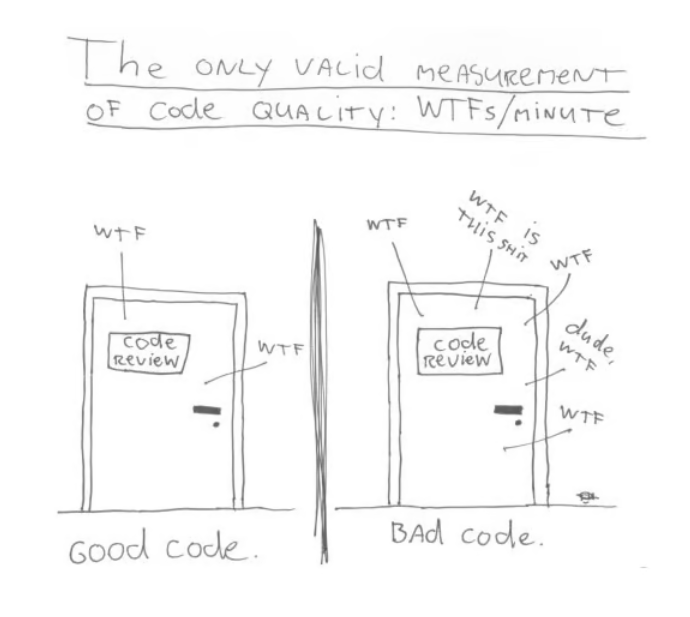 The ONLY VALid MEASUREMENT
OF Code QUALITY: WTFs/MINUTE
WTF
Code
REVIEW
WTF
Good code.
WTF
WTF is
THIS SHIT
WTF
code
REVIEW
dude,
WTF
WTF
BAd code.